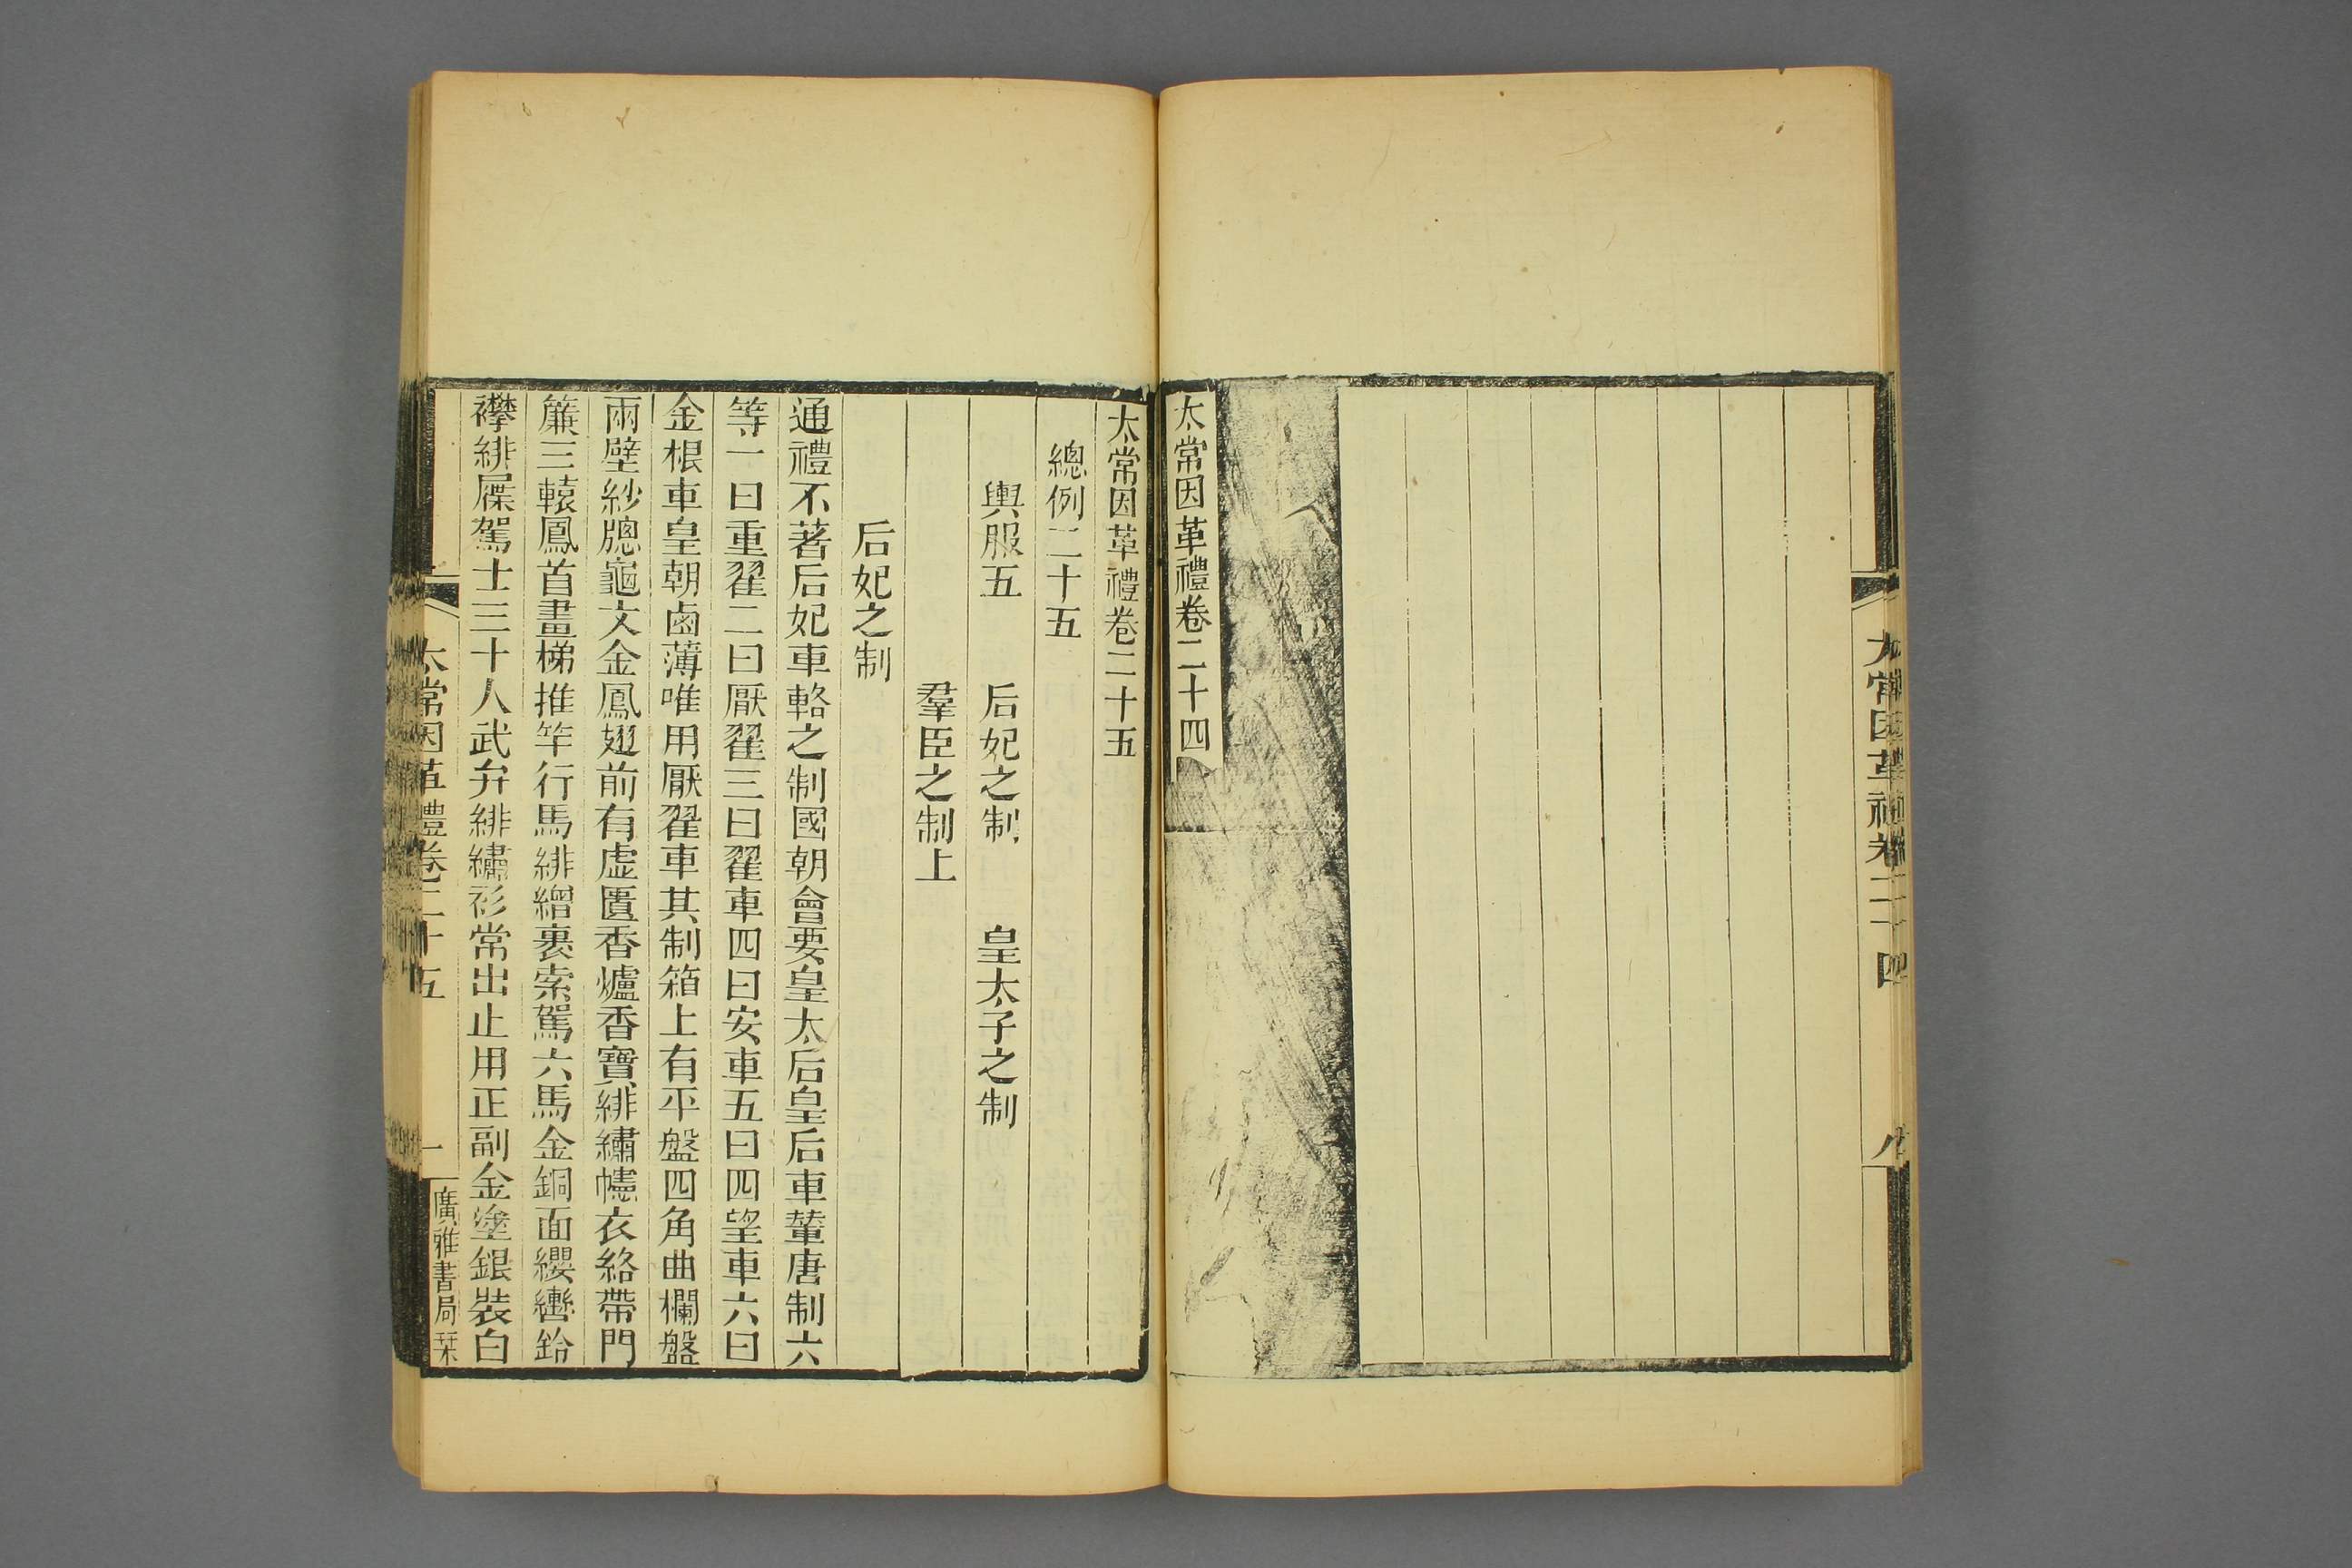 太常因革禮卷二十四
八
太常因革禮卷二十四
太常因革禮卷二十五
總例二十五
輿服五　后妃之制　皇太子之制
羣臣之制上
后妃之制
通禮不著后妃車輅之制國朝會要皇太后皇后車輦唐制六
等一曰重翟二曰厭翟三曰翟車四曰安車五曰四望車六曰
金根車皇朝鹵薄唯用厭翟車其制箱上有平盤四角曲欄盤
兩壁紗牎龜文金鳳翅前有虛匱香爐香寶緋繡幰衣絡帶門
簾三轅鳳首畫梯推竿行馬緋繒裹索駕六馬金銅面纓轡鈴
襻緋屧駕士三十人武弁緋繡衫常出止用正副金塗銀裝白
太常因革禮卷二十五
一
廣雅書局栞